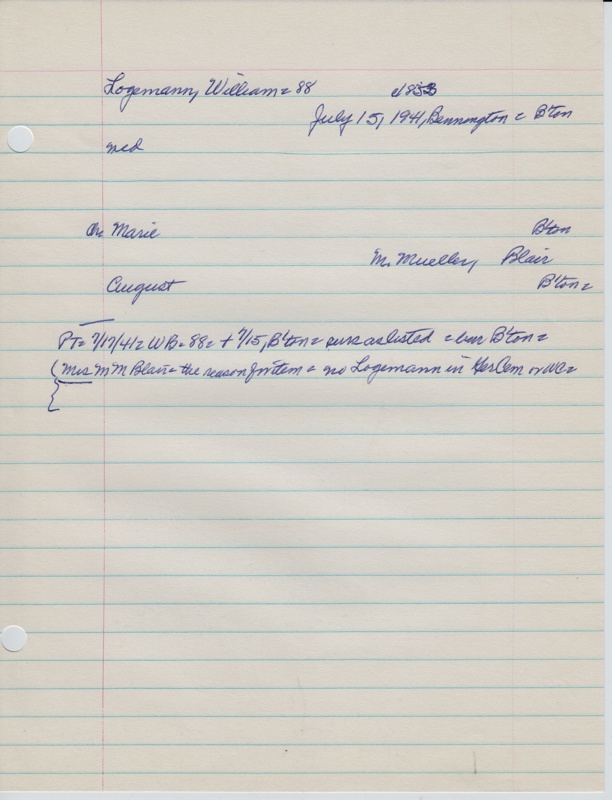 Logemann, William = 88 c1853
July 15, 1941, Bennington = B'ton
med
ch. Marie B'ton
M. Mueller, Blair
August B'ton =
PT = 7/17/41 = WB = 88 = + 7/15, B'ton = surv as listed = bur B'ton =
(Mrs M M Blair = the reason for item = no Logemann in Ger Cem or